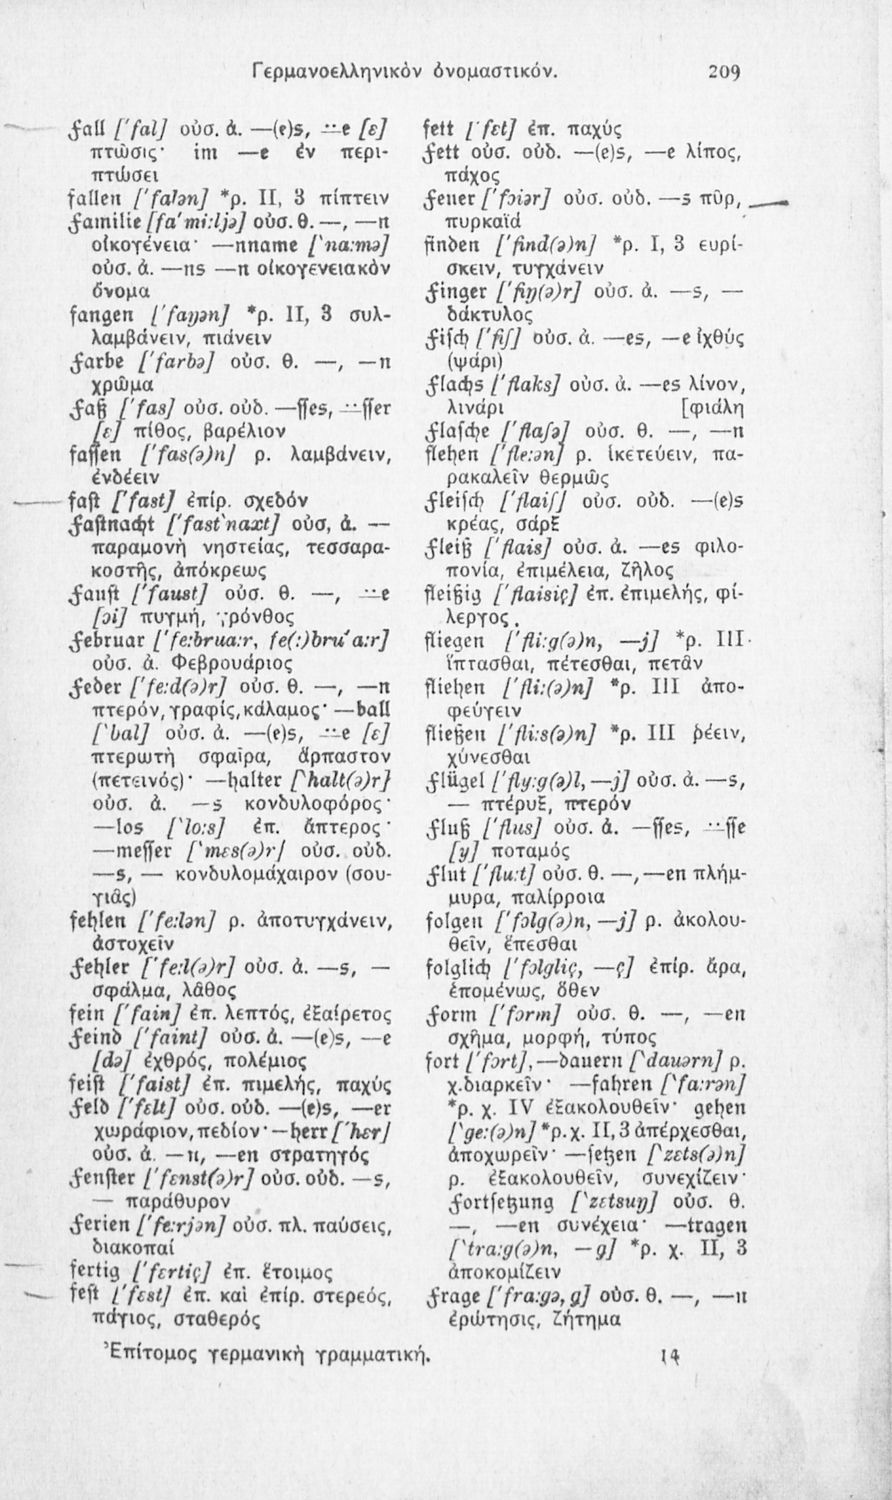 Γερμανοελληνικὸν ὀνομαστικόν.
209
Fall ['fal] οὐσ. ἀ. —(e)s, ⸚e [ɛ]
πτῶσις· im —e ἐν περι-
πτώσει
fallen ['falən] *ρ. II, 3 πίπτειν
Familie [fa'mi:ljə] οὐσ. θ. —, —n
οἰκογένεια· —nname [ˋna:mə]
οὐσ. ἀ. —ns —n οἰκογενειακὸν
ὄνομα
fangen ['faŋən] *ρ. II, 3 συλ-
λαμβάνειν, πιάνειν
Farbe ['farbə] οὐσ. θ. —, —n
χρῶμα
Faß ['fas] οὐσ. οὐδ. —sses, ⸚sser
[ɛ] πίθος, βαρέλιον
fassen ['fas(ə)n] ρ. λαμβάνειν,
ἐνδέειν
fast ['fast] ἐπίρ. σχεδόν
Fastnacht ['fastˋnaxt] οὐσ, ἀ. —
παραμονὴ νηστείας, τεσσαρα-
κοστῆς, ἀπόκρεως
Faust ['faust] οὐσ. θ. —, ⸚e
[ɔi] πυγμή, γρόνθος
Februar ['fe:brua:r, fe(:)bru'a:r]
οὐσ. ἀ. Φεβρουάριος
Feder ['fe:d(ə)r] οὐσ. θ. —, —n
πτερόν, γραφίς, κάλαμος· —ball
[ˋbal] οὐσ. ἀ. —(e)s, ⸚e [ɛ]
πτερωτὴ σφαῖρα, ἅρπαστον
(πετεινός)· —halter [ˋhalt(ə)r]
οὐσ. ἀ. —s κονδυλοφόρος·
—los [ˋlo:s] ἐπ. ἄπτερος·
—messer [ˋmɛs(ə)r] οὐσ. οὐδ.
—s, — κονδυλομάχαιρον (σου-
γιᾶς)
fehlen ['fe:lən] ρ. ἀποτυγχάνειν,
ἀστοχεῖν
Fehler ['fe:l(ə)r] οὐσ. ἀ. —s, —
σφάλμα, λᾶθος
fein ['fain] ἐπ. λεπτός, ἐξαίρετος
Feind ['faint] οὐσ. ἀ. —(e)s, —e
[də] ἐχθρός, πολέμιος
feist ['faist] ἐπ. πιμελής, παχύς
Feld ['fɛlt] οὐσ. οὐδ. —(e)s, —er
χωράφιον, πεδίον· —herr [ˋhɛr]
οὐσ. ἀ. —n, —en στρατηγός
Fenster ['fɛnst(ə)r] οὐσ. οὐδ. —s,
— παράθυρον
Ferien ['fe:rjən] οὐσ. πλ. παύσεις,
διακοπαί
fertig ['fɛrtiç] ἐπ. ἕτοιμος
fest ['fɛst] ἐπ. καὶ ἐπίρ. στερεός,
πάγιος, σταθερός
fett ['fɛt] ἐπ. παχύς
Fett οὐσ. οὐδ. —(e)s, —e λίπος,
πάχος
Feuer ['fɔiər] οὐσ. οὐδ. —s πῦρ,
πυρκαϊά
finden ['find(ə)n] *ρ. I, 3 ευρί-
σκειν, τυγχάνειν
Finger ['fiŋ(ə)r] οὐσ. ἀ. —s, —
δάκτυλος
Fisch ['fiʃ] οὐσ. ἀ. —es, —e ἰχθύς
(ψάρι)
Flachs ['flaks] οὐσ. ἀ. —es λίνον,
λινάρι [φιάλη
Flasche ['flaʃə] οὐσ. θ. —, —n
flehen ['fle:ən] ρ. ἱκετεύειν, πα-
ρακαλεῖν θερμῶς
Fleisch ['flaiʃ] οὐσ. οὐδ. —(e)s
κρέας, σάρξ
Fleiß ['flais] οὐσ. ἀ. —es φιλο-
πονία, ἐπιμέλεια, ζῆλος
fleißig ['flaisiç] ἐπ. ἐπιμελής, φί-
λεργος.
fliegen ['fli:g(ə)n, —j] *ρ. III.
ἵπτασθαι, πέτεσθαι, πετᾶν
fliehen ['fli:(ə)n] *ρ. III ἀπο-
φεύγειν
fließen ['fli:s(ə)n] *ρ. III ῥέειν,
χύνεσθαι
Flügel ['fly:g(ə)l, —j] οὐσ. ἀ. —s,
— πτέρυξ, πτερόν
Fluß ['flus] οὐσ. ἀ. —sses, ⸚sse
[y] ποταμός
Flut ['flu:t] οὐσ. θ. —, —en πλήμ-
μυρα, παλίρροια
folgen ['fɔlg(ə)n, —j] ρ. ἀκολου-
θεῖν, ἕπεσθαι
folglich ['fɔlgliç, —ç] ἐπίρ. ἄρα,
ἑπομένως, ὅθεν
Form ['fɔrm] οὐσ. θ. —, —en
σχῆμα, μορφή, τύπος
fort ['fɔrt], —dauern [ˋdauərn] ρ.
χ. διαρκεῖν· —fahren [ˋfa:rən]
*ρ. χ. IV ἐξακολουθεῖν· gehen
[ˋge:(ə)n] *ρ. χ. II, 3 ἀπέρχεσθαι,
ἀποχωρεῖν· —setzen [ˋzɛts(ə)n]
ρ. ἐξακολουθεῖν, συνεχίζειν·
Fortsetzung [ˋzɛtsuŋ] οὐσ. θ.
—, —en συνέχεια· —tragen
[ˋtra:g(ə)n, —g] *ρ. χ. II, 3
ἀποκομίζειν
Frage ['fra:gə, g] οὐσ. θ. —, —n
ἐρώτησις, ζήτημα
Ἐπίτομος γερμανικὴ γραμματική.
14